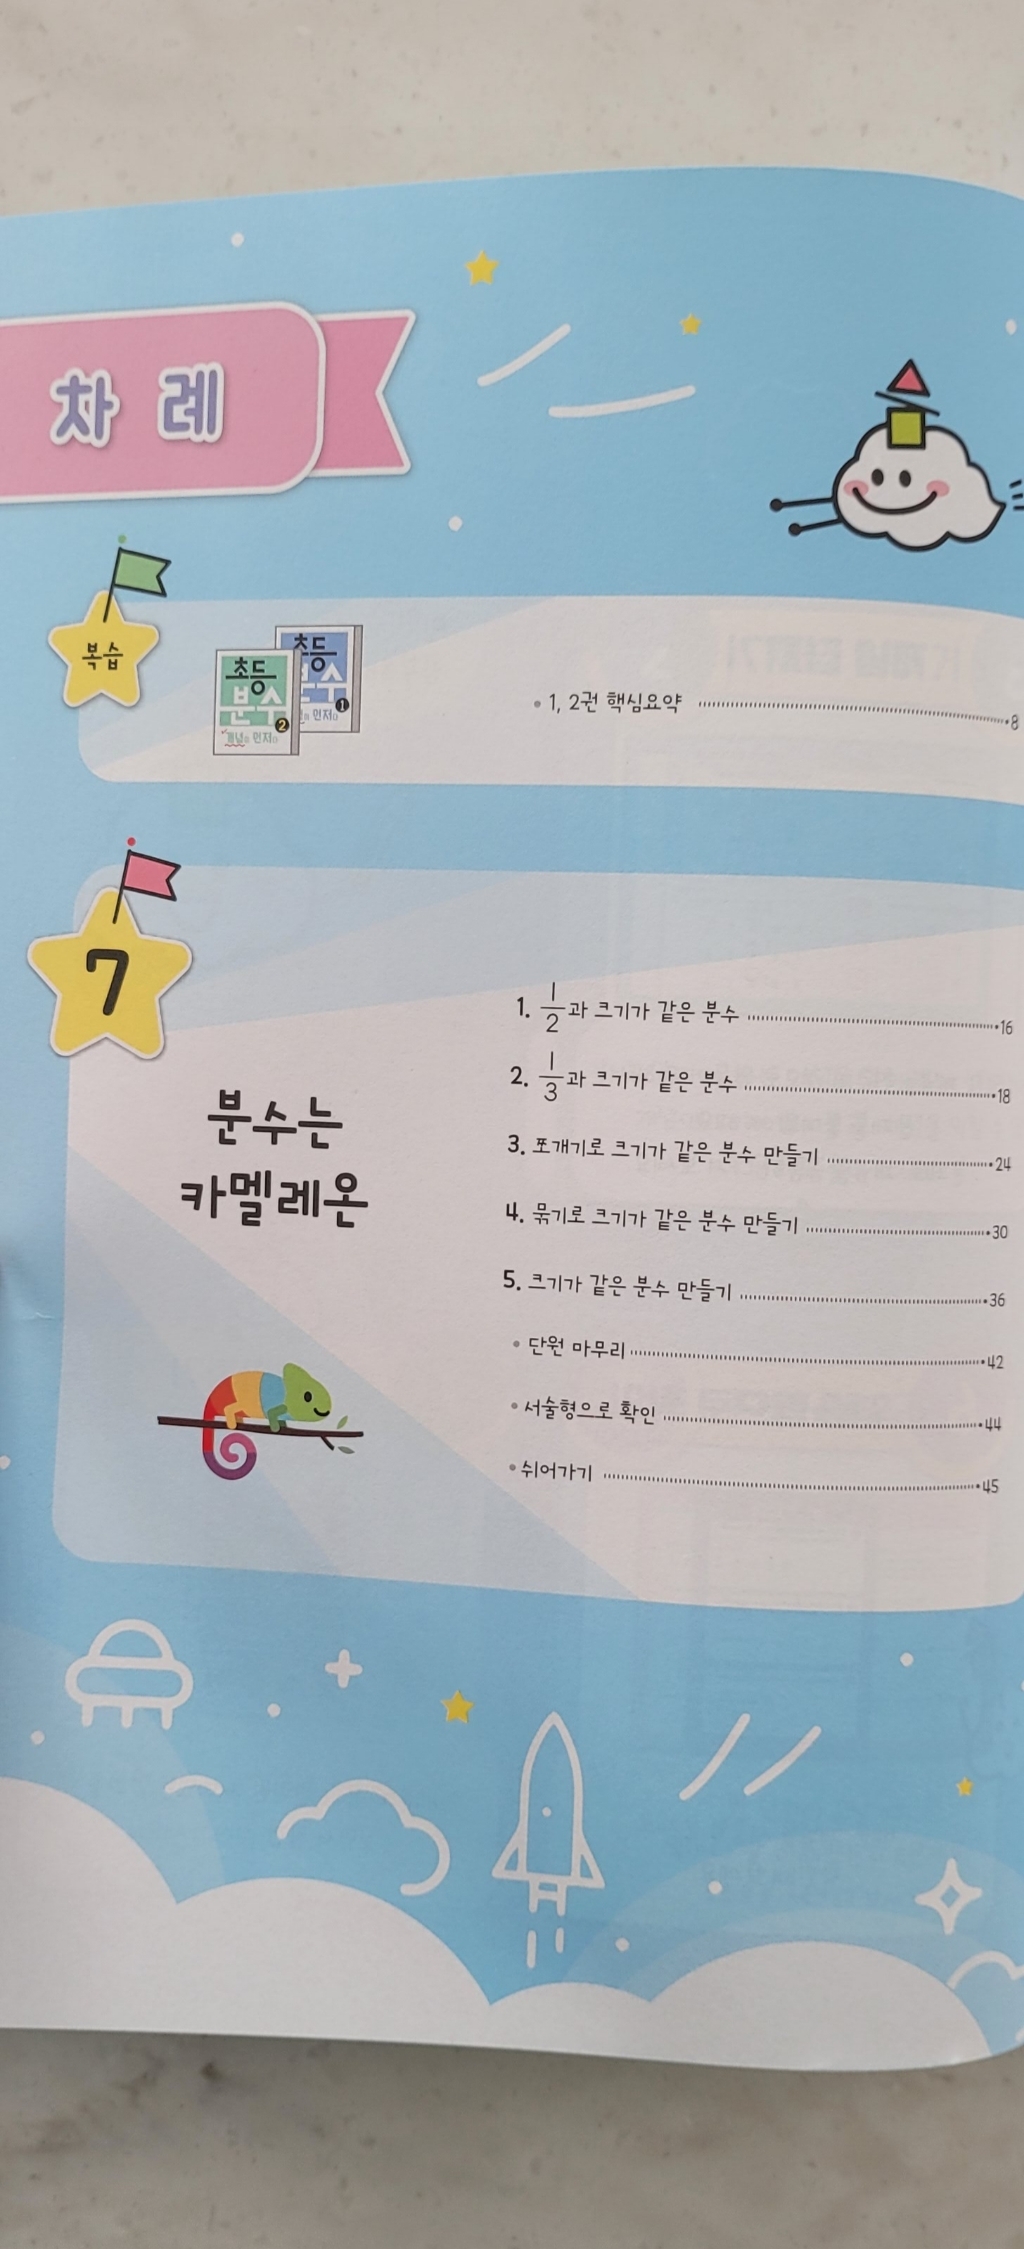 차 례
복습
초등
분수
2
개념이 먼저다
초등
분수
1
먼저다
• 1, 2권 핵심요약 8
7
분수는
카멜레온
1. 1/2과 크기가 같은 분수 16
2. 1/3과 크기가 같은 분수 18
3. 쪼개기로 크기가 같은 분수 만들기 24
4. 묶기로 크기가 같은 분수 만들기 30
5. 크기가 같은 분수 만들기 36
• 단원 마무리 42
• 서술형으로 확인 44
• 쉬어가기 45